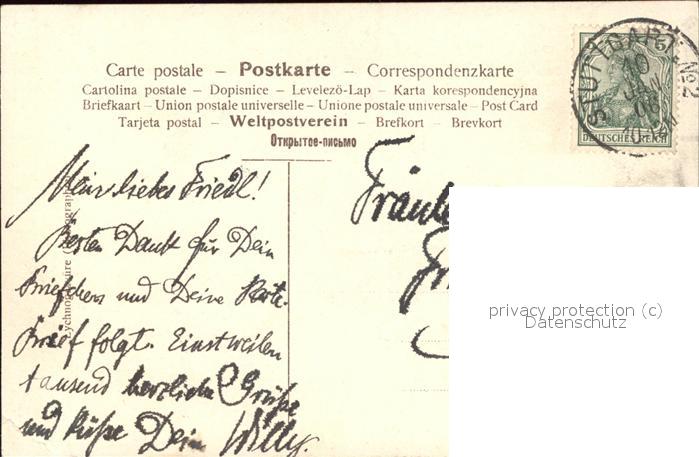 Carte postale – Postkarte – Correspondenzkarte
Cartolina postale – Dopisnice – Levelező-Lap – Karta korespondencyjna
Briefkaart – Union postale universelle – Unione postale universale – Post Card
Tarjeta postal – Weltpostverein – Brefkort – Brevkort
Открытое-письмо
STUTTGART No 2
10 JAN 08
5
DEUTSCHES REICH
Mein liebes Friedl!
Besten Dank für Dein
Briefchen und Deine Karte.
Brief folgt. Einstweilen
tausend herzliche Grüße
und Küße Dein Willy.
Fräule
Fr
privacy protection (c)
Datenschutz